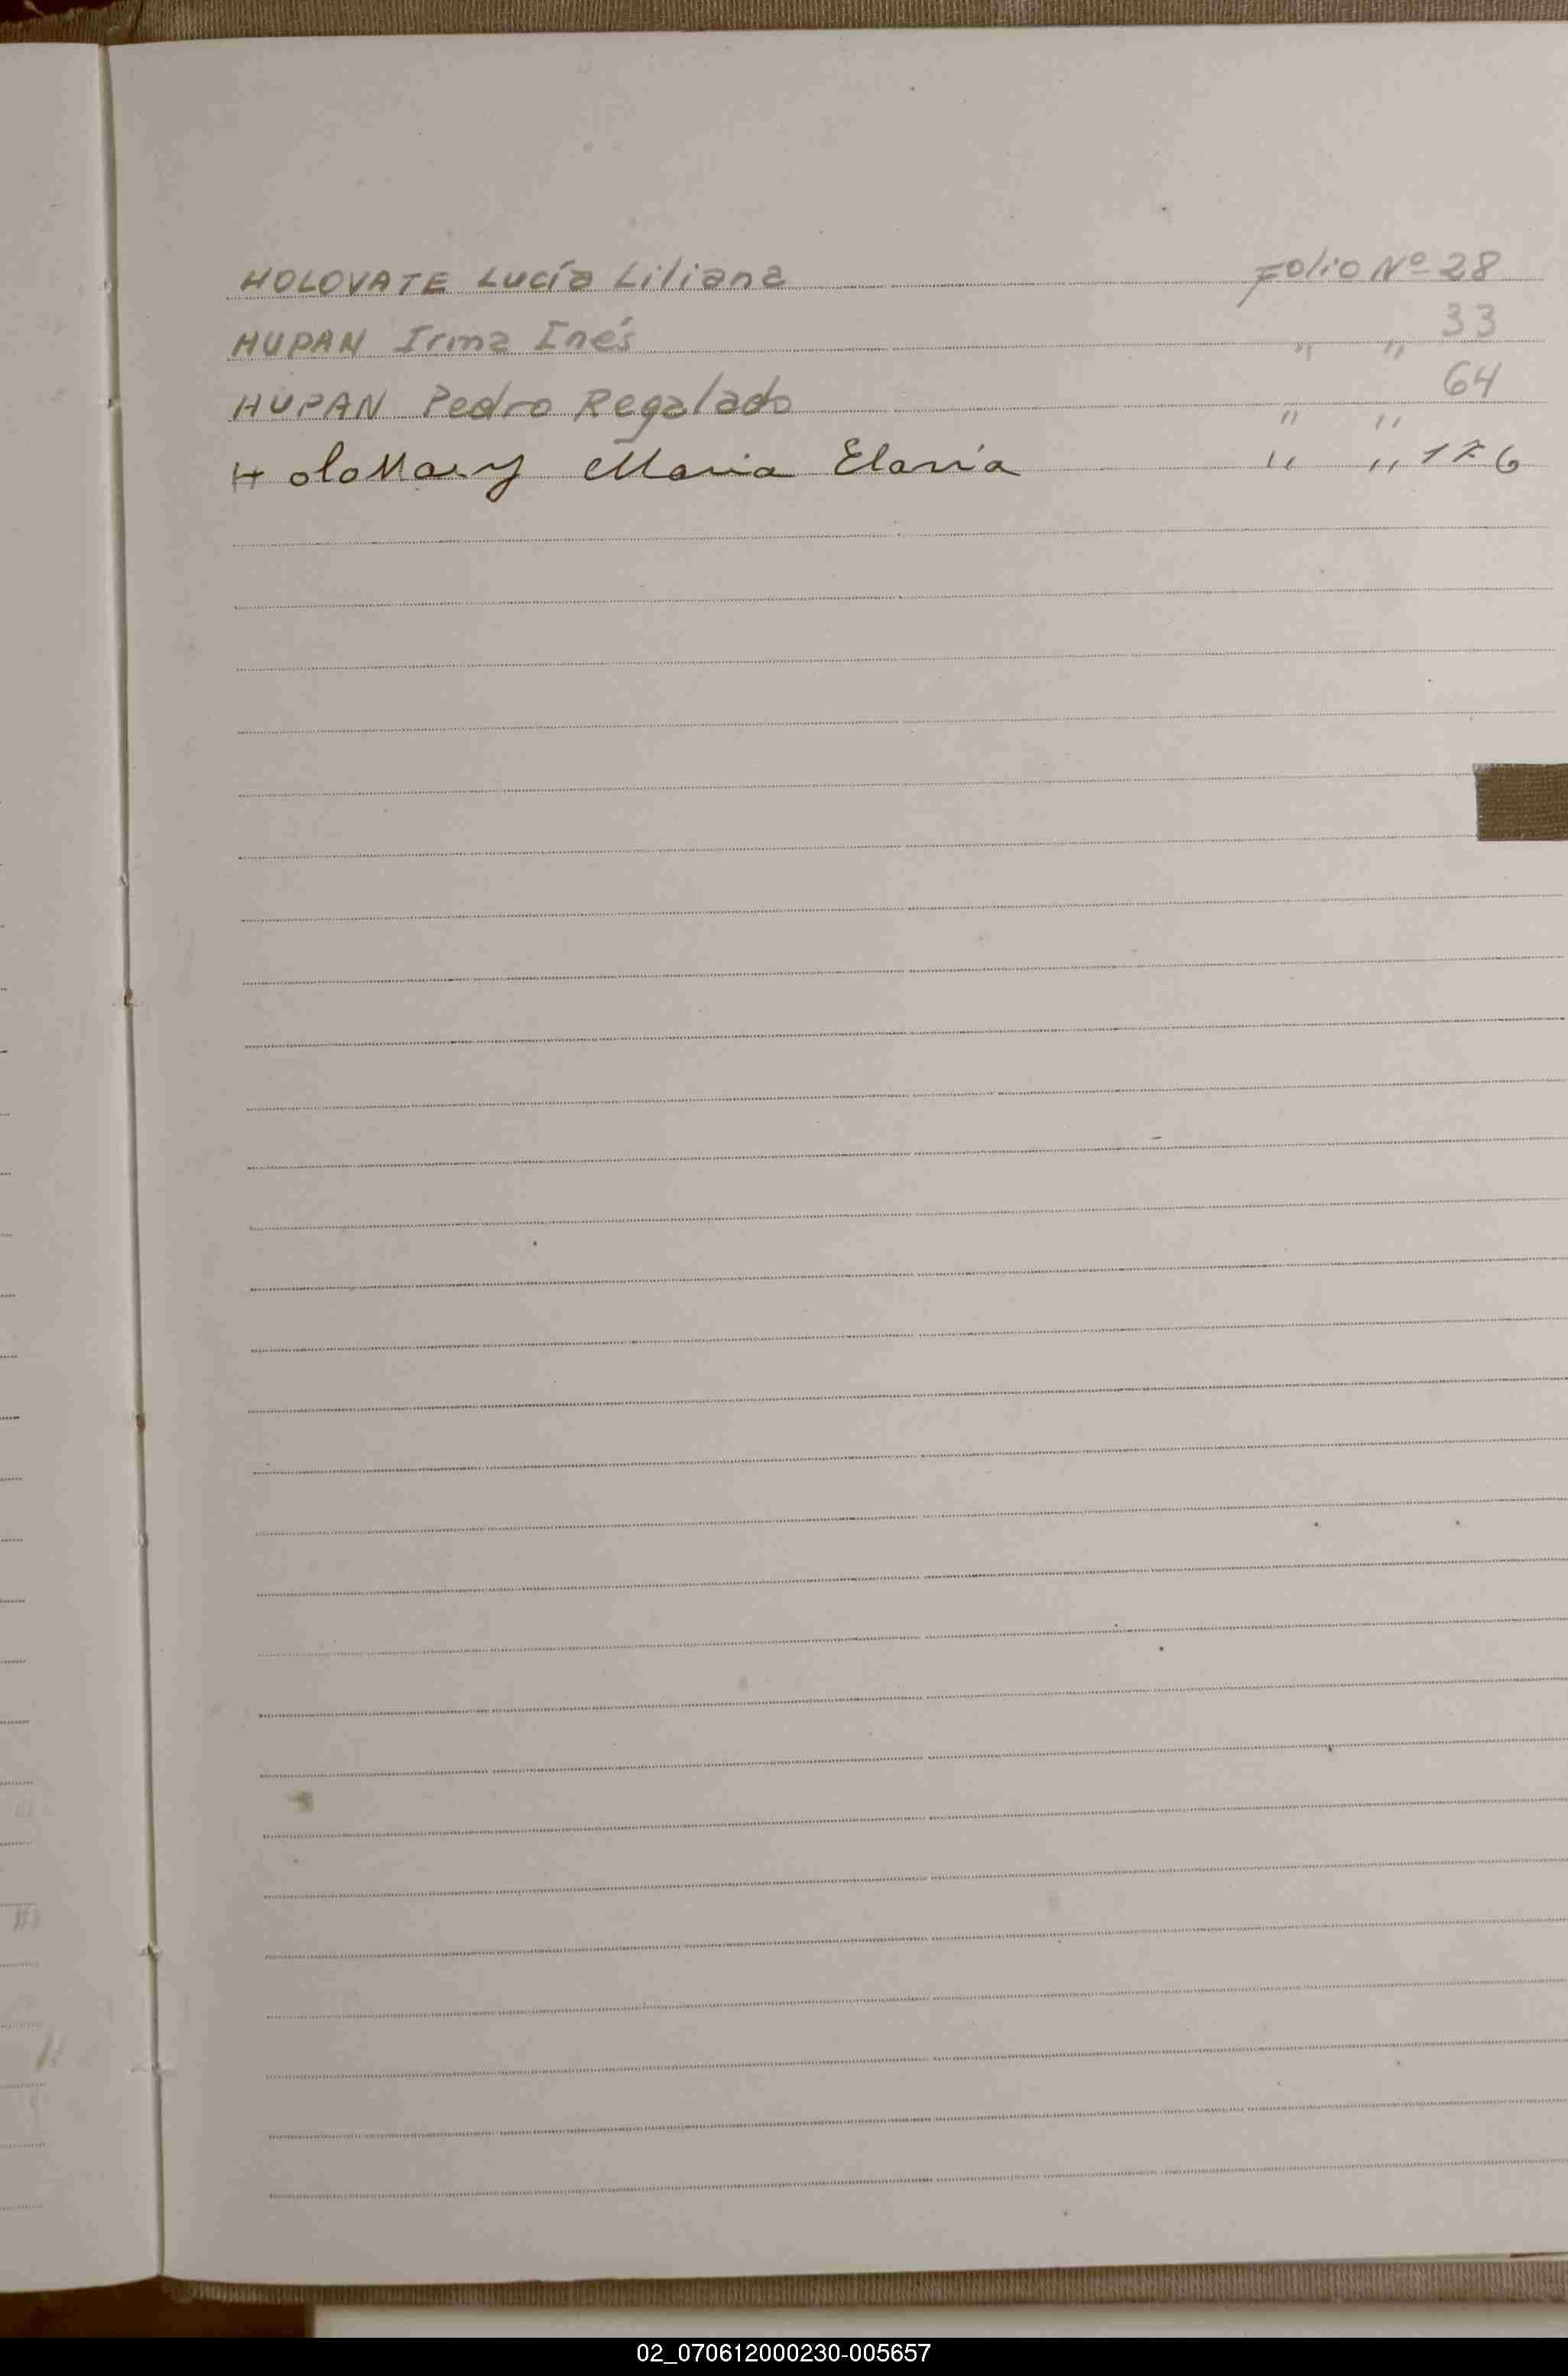 HOLOVATE Lucía Liliana Folio Nº 28
HUPAN Irma Inés " " 33
HUPAN Pedro Regalado " " 64
Maria " " 176
02_070612000230-005657